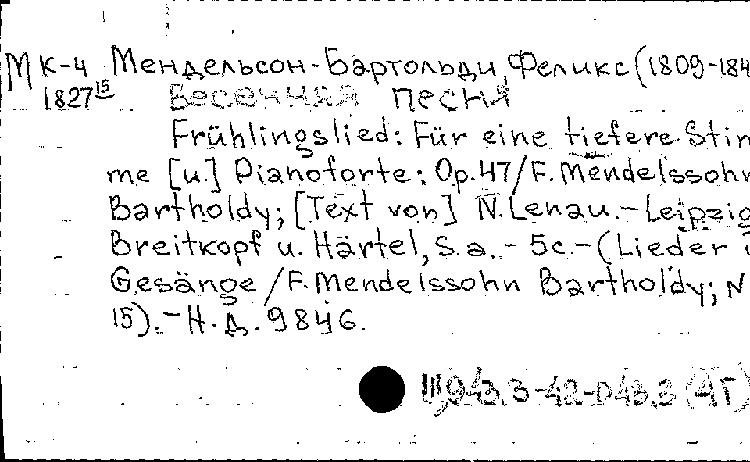 МК-4 Мендельсон-Бартольди, Феликс (1809-184
1827 15 Весенняя песня
Frühlingslied: Für eine tiefere Stim
me [u.] Pianoforte: Op.47/F. Mendelssohn
Bartholdy; [Text von] N. Lenau.-Leipzig
Breitkopf u. Härtel, S.a.- 5c.-(Lieder
Gesänge /F. Mendelssohn Bartholdy; N
15).-Н.Д. 9846.